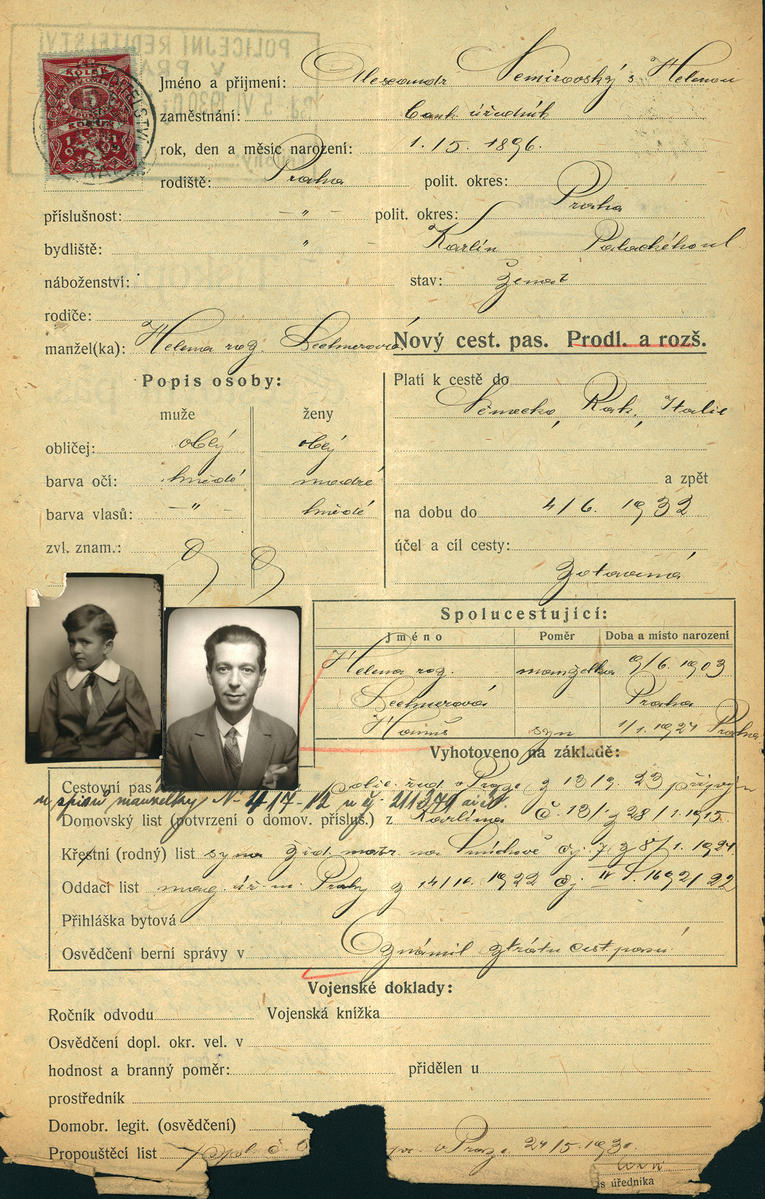 POLICEJNÍ ŘEDITELSTVÍ
V PRAZE
KOLEK
5
Jméno a příjmení: Alexandr Nemirovský s Helenou
zaměstnání: bank. úředník
rok, den a měsíc narození: 1. 5. 1896.
rodiště: Praha polit. okres: Praha
příslušnost: — " — polit. okres:
bydliště: " Karlín Palackého ul
náboženství: stav: ženat
rodiče:
manžel(ka): Helena roz. Nový cest. pas. Prodl. a rozš.
Popis osoby:
muže ženy
obličej: obl. obl.
barva očí: hnědé modré
barva vlasů: — " — hnědé
zvl. znam.:
Platí k cestě do
Německa, Rak., Italie
a zpět
na dobu do 4/6. 1932
účel a cíl cesty:
zotavená
Spolucestující:
Jméno Poměr Doba a místo narození
Helena roz. manželka 9/6. 1903
Praha
Hanuš syn 1/1. 1924 Praha
Vyhotoveno na základě:
Cestovní pas polic. řed v Praze z 13/9. 23
u spisů manželky N° 414-12
Domovský list (potvrzení o domov. přísluš.) z Karlína č. 13/ z 28/1. 1915.
Křestní (rodný) list syna žid. matr. na Smíchově čj. 7. z 8/1. 1924.
Oddací list mag. úř. m. Prahy z 14/10. 1922 čj. 1692/22
Přihláška bytová
Osvědčení berní správy v Oznámil ztrátu cest. pasu
Vojenské doklady:
Ročník odvodu Vojenská knížka
Osvědčení dopl. okr. vel. v
hodnost a branný poměr: přidělen u
prostředník
Domobr. legit. (osvědčení)
Propouštěcí list v Praze 24/5. 1930.
s úředníka